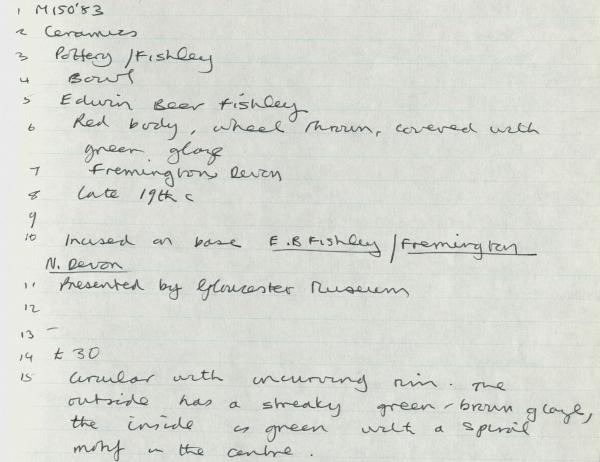 1 M150'83
2 Ceramics
3 Pottery / Fishley
4 Bowl
5 Edwin Beer Fishley
6 Red body, wheel thrown, covered with
green glaze
7 Fremington, Devon
8 Late 19th c
9
10 Incised on base E.B Fishley / Fremington
N. Devon
11 Presented by Gloucester Museum
12
13 -
14 £30
15 Circular with incurving rim. The
outside has a streaky green-brown glaze,
the inside is green with a spiral
motif in the centre.